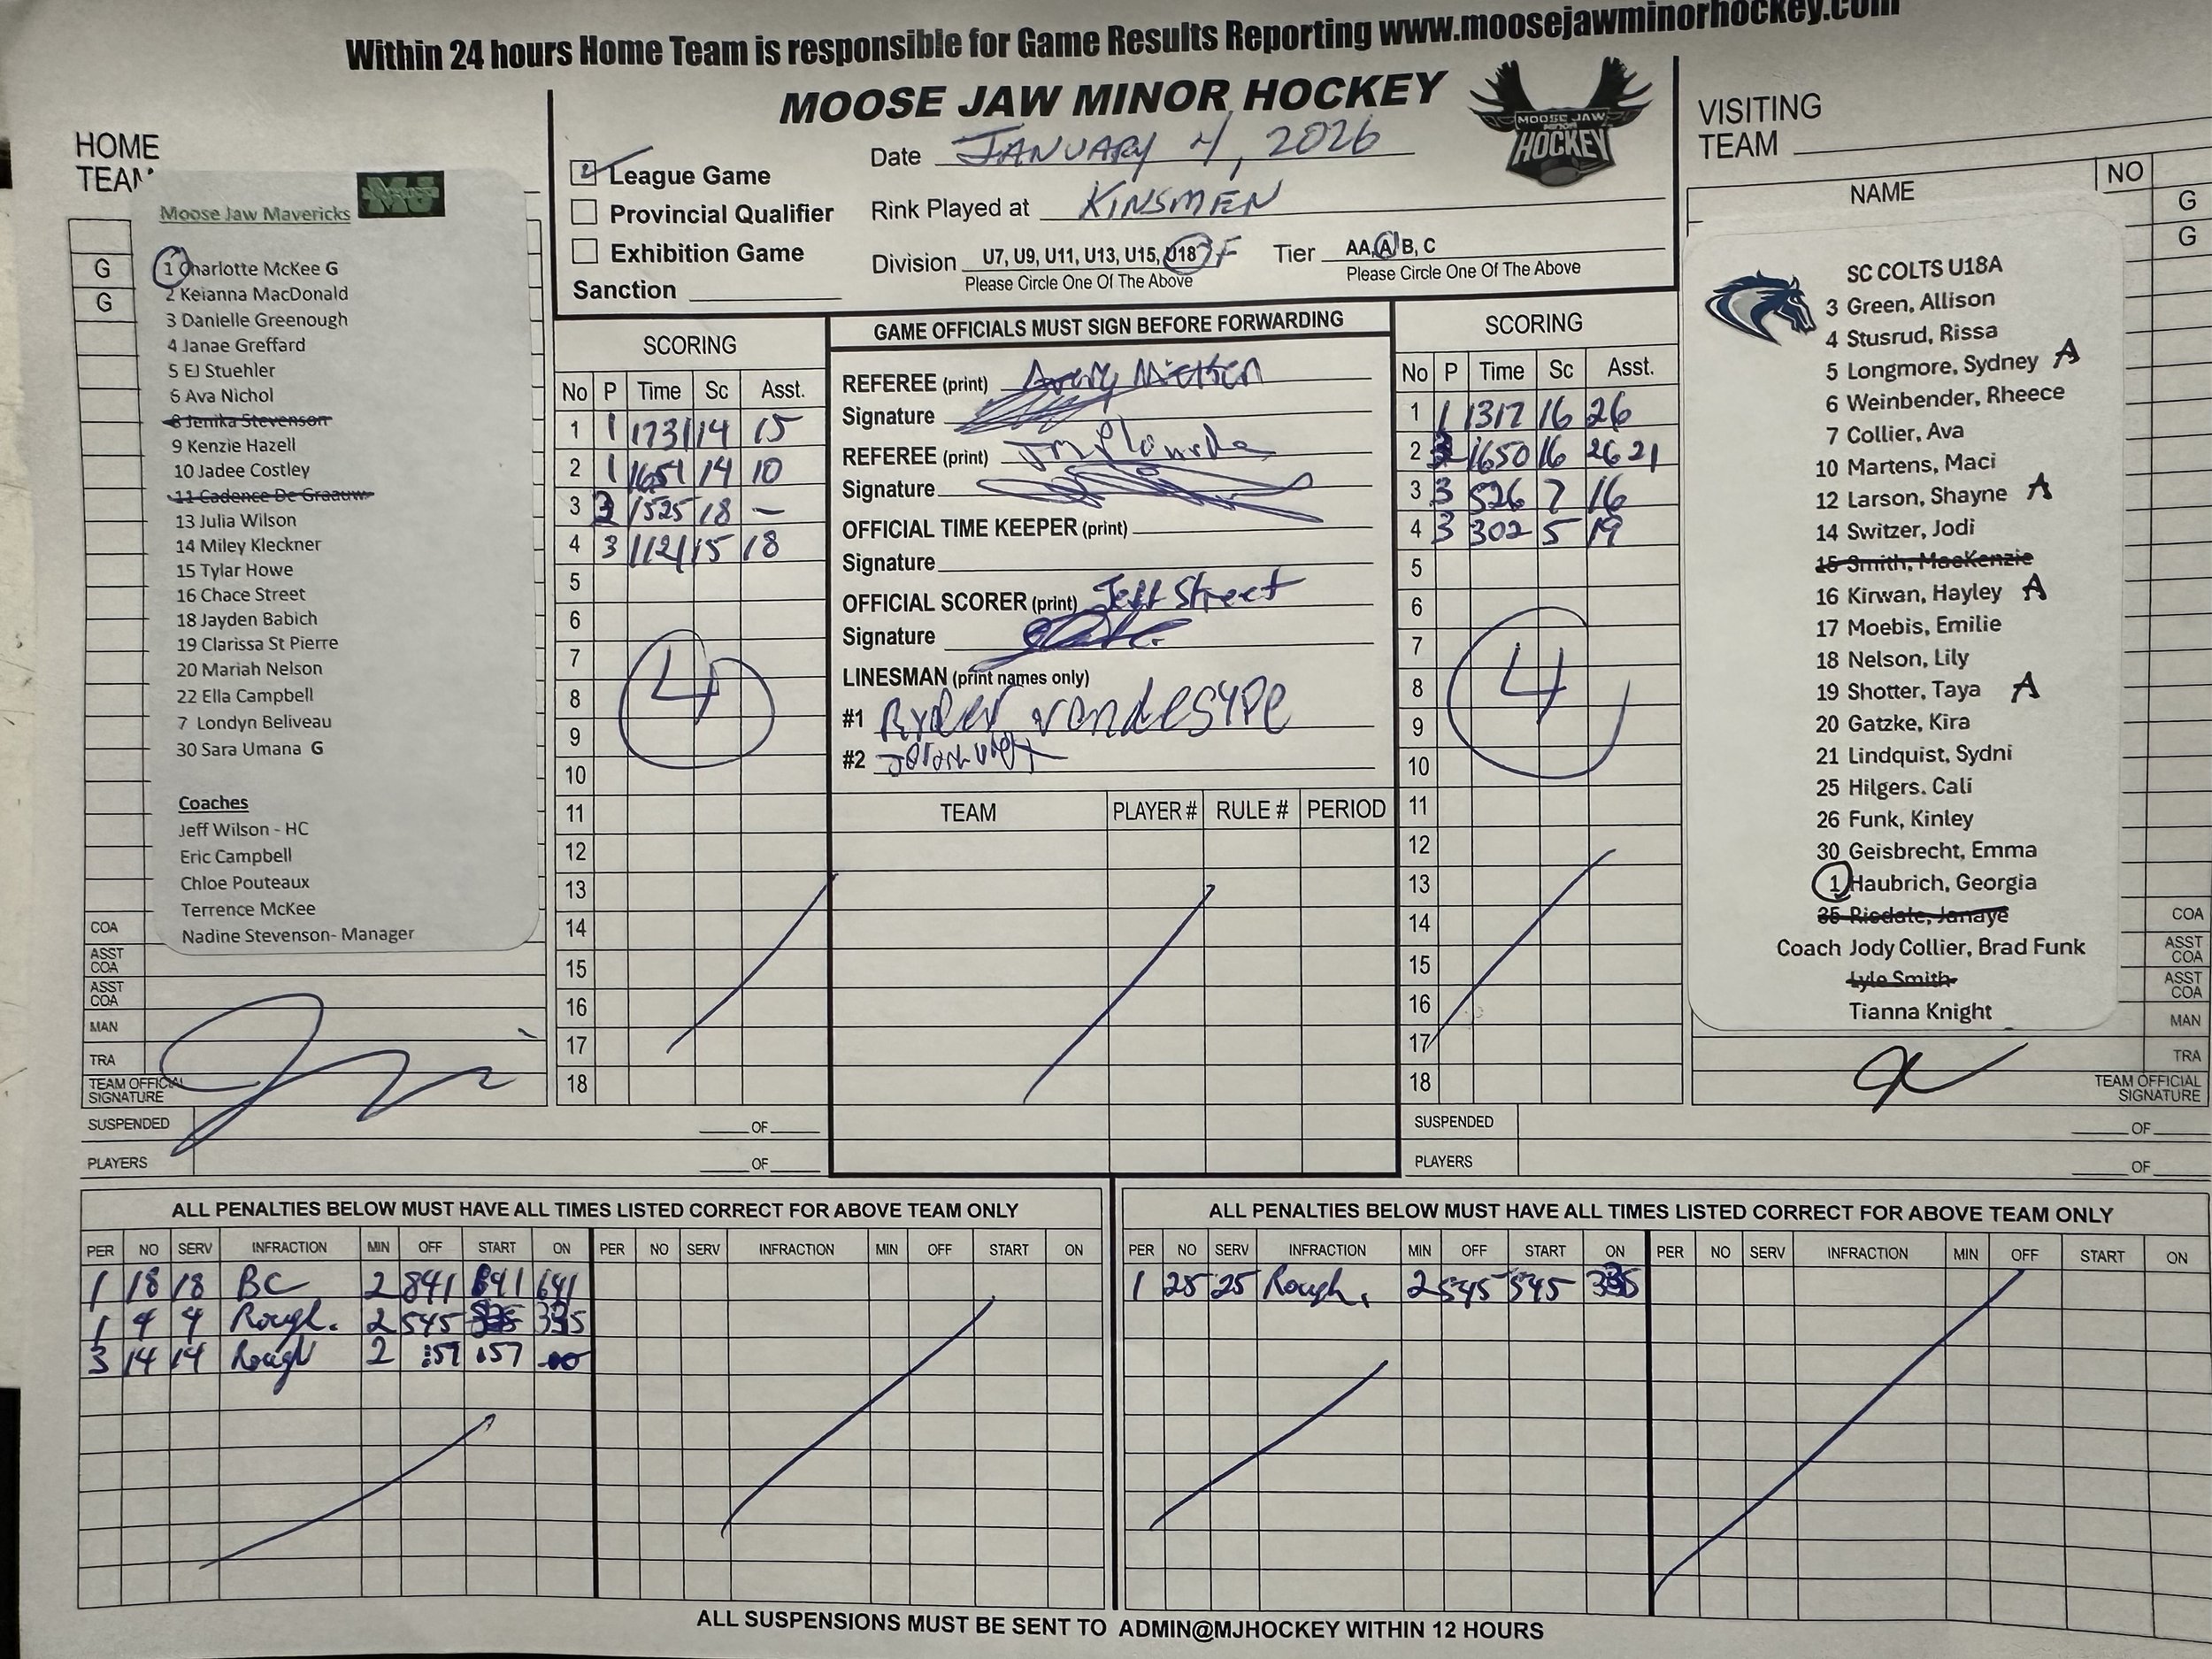 Within 24 hours Home Team is responsible for Game Results Reporting www.moosejawminorhockey.com
MOOSE JAW MINOR HOCKEY
MOOSE JAW
MINOR
HOCKEY
HOME
TEAM
League Game
Provincial Qualifier
Exhibition Game
Sanction
Date JANUARY 4, 2026
Rink Played at KINSMEN
Division U7, U9, U11, U13, U15, U18 F Tier AA, A, B, C
Please Circle One Of The Above Please Circle One Of The Above
VISITING
TEAM
NAME NO
G
G
Moose Jaw Mavericks
1 Charlotte McKee G
2 Keianna MacDonald
3 Danielle Greenough
4 Janae Greffard
5 EJ Stuehler
6 Ava Nichol
8 Jenika Stevenson
9 Kenzie Hazell
10 Jadee Costley
11 Cadence De Graauw
13 Julia Wilson
14 Miley Kleckner
15 Tylar Howe
16 Chace Street
18 Jayden Babich
19 Clarissa St Pierre
20 Mariah Nelson
22 Ella Campbell
7 Londyn Beliveau
30 Sara Umana G
Coaches
Jeff Wilson - HC
Eric Campbell
Chloe Pouteaux
Terrence McKee
Nadine Stevenson- Manager
G
G
COA
ASST COA
ASST COA
MAN
TRA
TEAM OFFICIAL SIGNATURE
SUSPENDED OF
PLAYERS OF
SCORING
No P Time Sc Asst.
1 1 1731 14 15
2 1 1651 14 10
3 2 1525 18 —
4 3 1121 15 18
5
6
7
8
9
10
11
12
13
14
15
16
17
18
4
GAME OFFICIALS MUST SIGN BEFORE FORWARDING
REFEREE (print) Avery
Signature
REFEREE (print)
Signature
OFFICIAL TIME KEEPER (print)
Signature
OFFICIAL SCORER (print) Jeff Street
Signature
LINESMAN (print names only)
#1 Ryder vandesype
#2
TEAM PLAYER # RULE # PERIOD
SCORING
No P Time Sc Asst.
1 1 1317 16 26
2 1650 16 26 21
3 3 526 7 16
4 3 302 5 19
5
6
7
8
9
10
11
12
13
14
15
16
17
18
4
SC COLTS U18A
3 Green, Allison
4 Stusrud, Rissa
5 Longmore, Sydney A
6 Weinbender, Rheece
7 Collier, Ava
10 Martens, Maci
12 Larson, Shayne A
14 Switzer, Jodi
15 Smith, MacKenzie
16 Kirwan, Hayley A
17 Moebis, Emilie
18 Nelson, Lily
19 Shotter, Taya A
20 Gatzke, Kira
21 Lindquist, Sydni
25 Hilgers. Cali
26 Funk, Kinley
30 Geisbrecht, Emma
1 Haubrich, Georgia
35 Janaye
Coach Jody Collier, Brad Funk
Lyle Smith
Tianna Knight
COA
ASST COA
ASST COA
MAN
TRA
TEAM OFFICIAL SIGNATURE
SUSPENDED OF
PLAYERS OF
ALL PENALTIES BELOW MUST HAVE ALL TIMES LISTED CORRECT FOR ABOVE TEAM ONLY
PER NO SERV INFRACTION MIN OFF START ON PER NO SERV INFRACTION MIN OFF START ON
1 18 18 BC 2 841 841 641
1 4 4 Rough. 2 545 
3 14 14 Rough 2 :57 :57 00
ALL PENALTIES BELOW MUST HAVE ALL TIMES LISTED CORRECT FOR ABOVE TEAM ONLY
PER NO SERV INFRACTION MIN OFF START ON PER NO SERV INFRACTION MIN OFF START ON
1 25 25 Rough. 2 545 545
ALL SUSPENSIONS MUST BE SENT TO ADMIN@MJHOCKEY WITHIN 12 HOURS